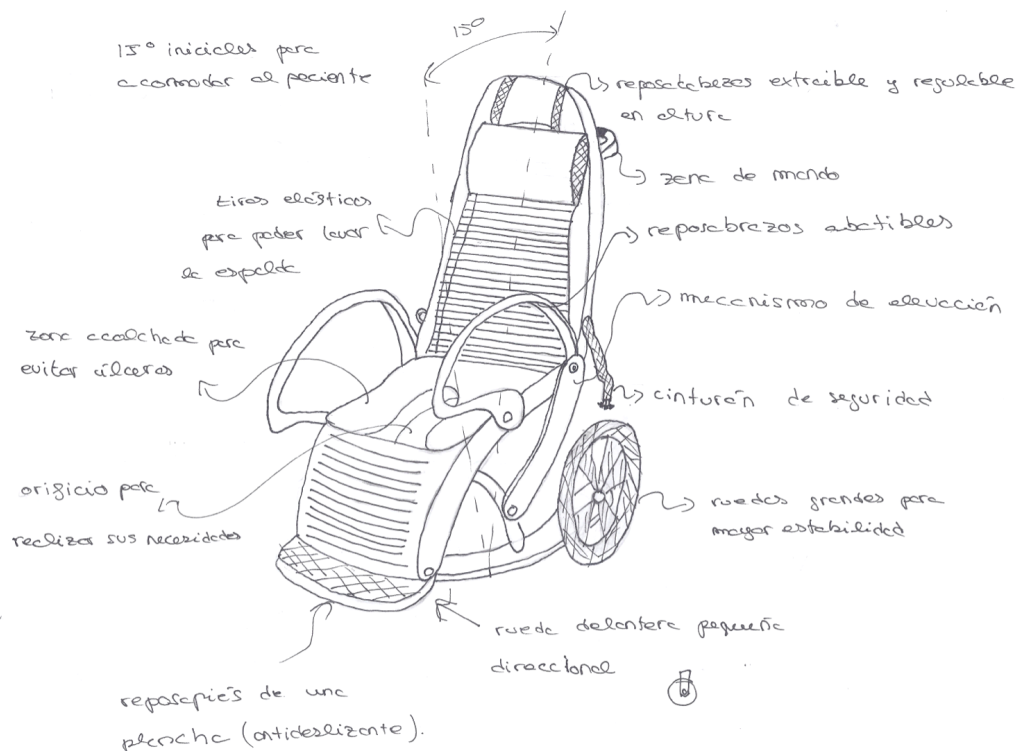 15°
15° iniciales para
acomodar al paciente
reposacabezas extraible y regulable
en altura
zona de mando
tiras elásticas
para poder lavar
la espalda
reposabrazos abatibles
mecanismo de elevación
zona acolchada para
evitar úlceras
cinturón de seguridad
orificio para
realizar sus necesidades
ruedas grandes para
mayor estabilidad
rueda delantera pequeña
direccional
reposapiés de una
plancha (antideslizante).